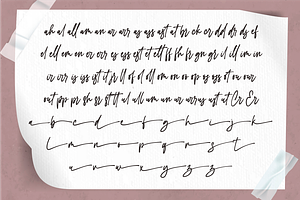 ah al all am an ar arr as ays ast at br ck cr dd dr ds ef
el ell em en er err es eys est et ett ff fh fr gn gr il ill im in
ir irr is ys ist it fr ll of ol oll om on or op os ys st ou our
out pp pr sh ss st tt ul ull um un ur urr us ust ut Cr Er
a b c d e f g h i j k
l m n o p q r s t
u v w x y z z